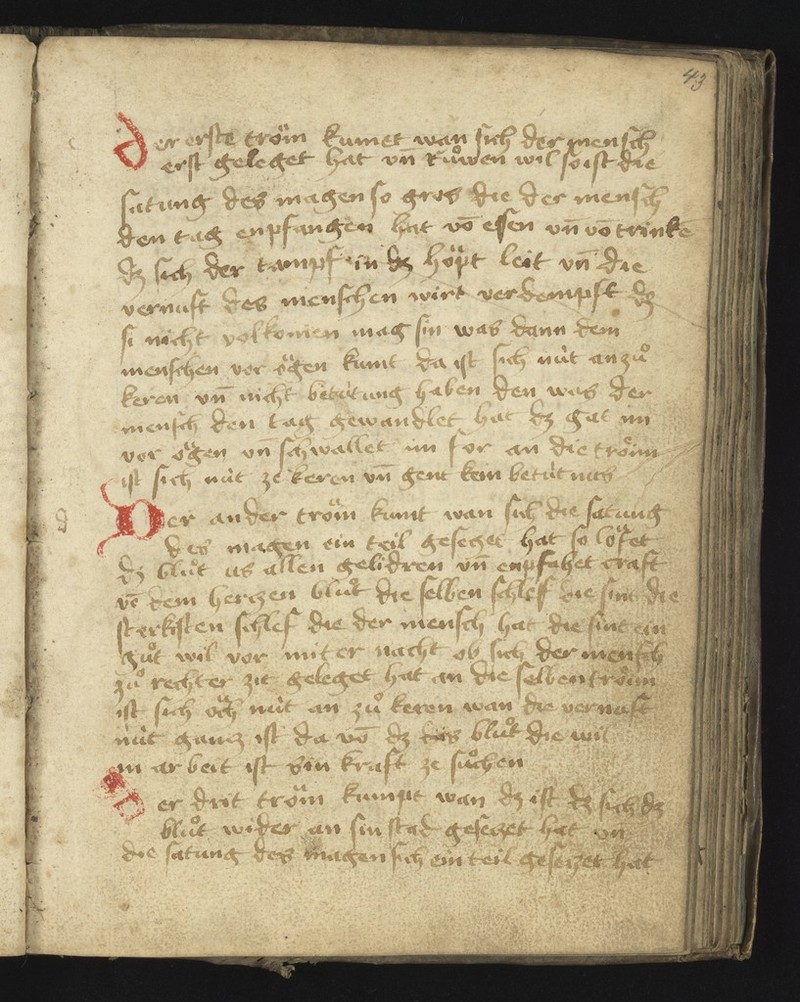 43
Der erste tröm kumet wan sich der mensch
erst geleget hat vn̄ růwen wil so ist die
satung des magen so gros die der mensch
den tag enpfangen hat vō essen vn̄ vō trinkē
dz sich der tampf in dz höpt leit vn̄ die
vernuft des menschen wirt verdempft dz
si nicht volkomen mag sin was dann dem
menschen vor ögen kunt da ist sich nüt an zů
keren vn̄ nicht betütung haben den was der
mensch den tag gewandlet hat dz gat im
vor ögen vn̄ schwallet im for an die tröim
ist sich nüt ze keren vn̄ gent kein betütnus
Der ander tröm kunt wan sich die satung
des magen ein teil geseczet hat so löfet
dz blůt us allen gelidren vn̄ enpfahet craft
vō dem herczen blůt die selben schlef die sint die
sterksten schlef die der mensch hat die sint ein
gůt wil vor miter nacht ob sich der mensch
zů rechter zit geleget hat an die selben tröim
ist sich öch nüt an zů keren wan die vernuft
nüt gancz ist da vō dz blůt die wil
in arbeit ist sin kraft ze sůchen
Der drit tröm kumpt wan dz ist dz sich dz
blůt wider an sin stad geseczet hat vn̄
die satung des magen sich ein teil geseczet hat